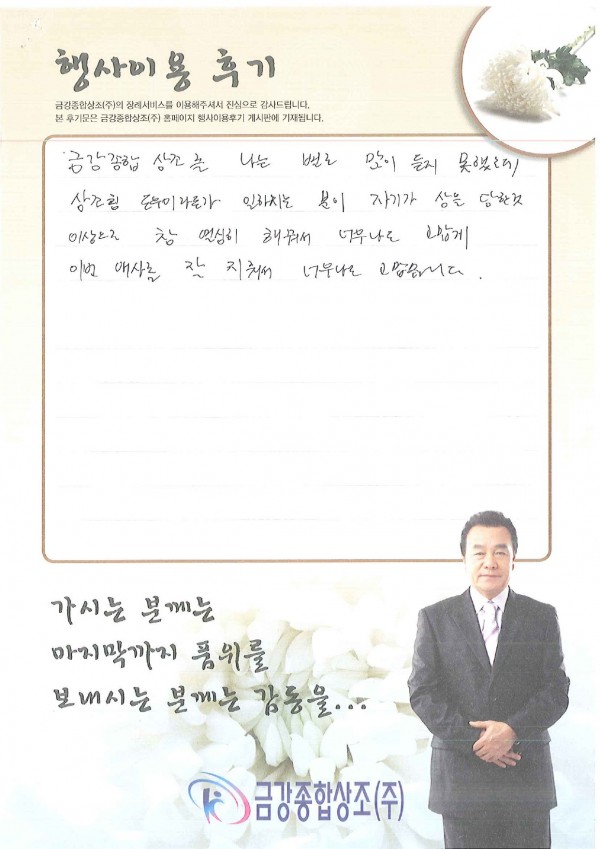 행사이용 후기
금강종합상조(주)의 장례서비스를 이용해주셔서 진심으로 감사드립니다.
본 후기문은 금강종합상조(주) 홈페이지 행사이용후기 게시판에 기재됩니다.
금강종합 상조를 나는 별로 많이 듣지 못했으며
상조팀 도우미 일하시는 분이 자기가 상을 당한것
이상으로 참 열심히 해줘서 너무나도 고맙게
이번 애사를 잘 치춰서 너무나도 고맙습니다.
가시는 분께는
마지막까지 품위를
보내시는 분께는 감동을...
금강종합상조(주)